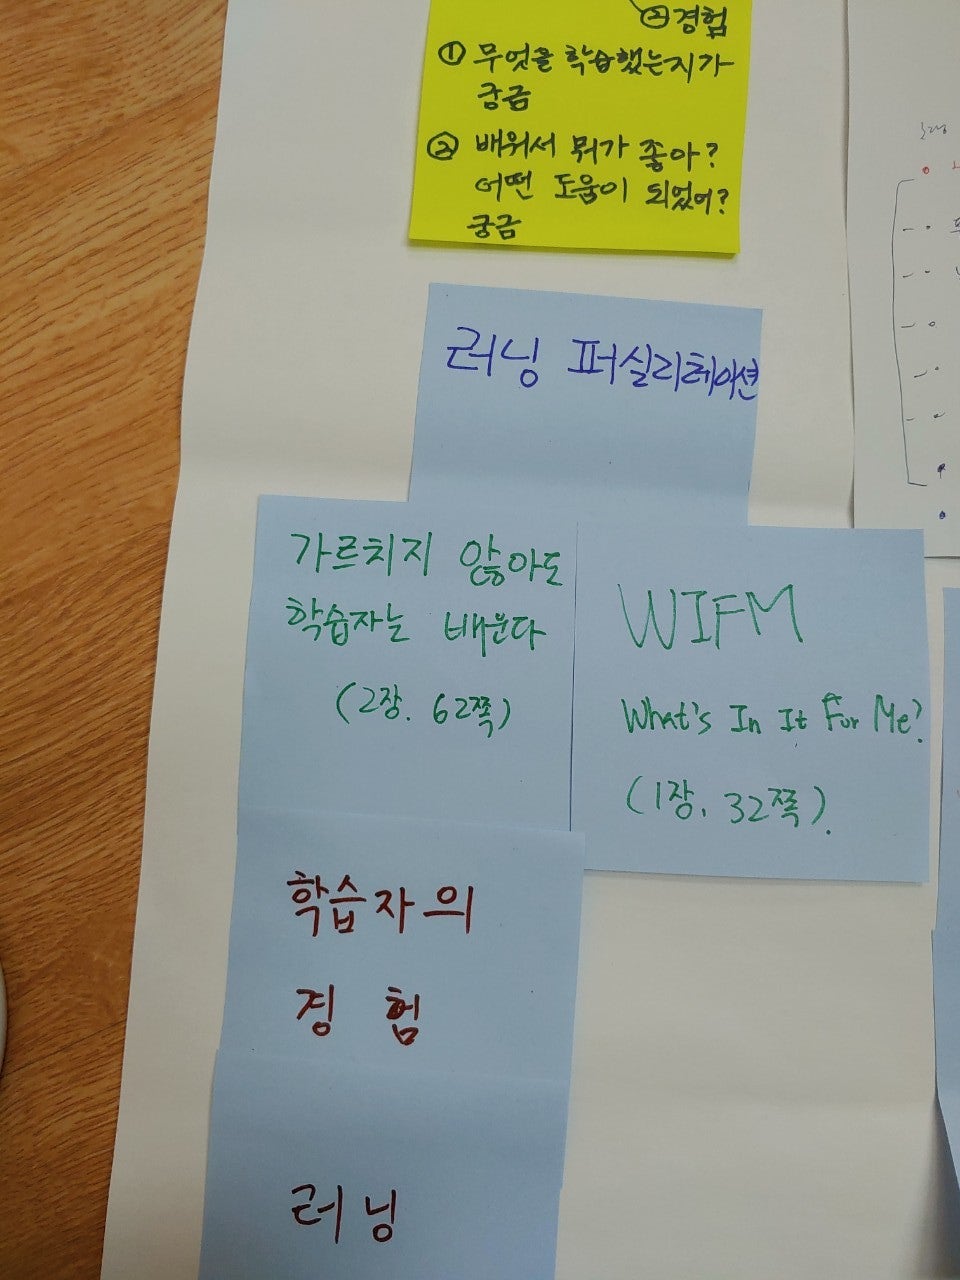 ② 경험
① 무엇을 학습했는지가
궁금
② 배워서 뭐가 좋아?
어떤 도움이 되었어?
궁금
러닝 퍼실리테이션
가르치지 않아도
학습자는 배운다
(2장. 62쪽)
WIFM
What's In It For Me?
(1장. 32쪽).
학습자의
경험
러닝